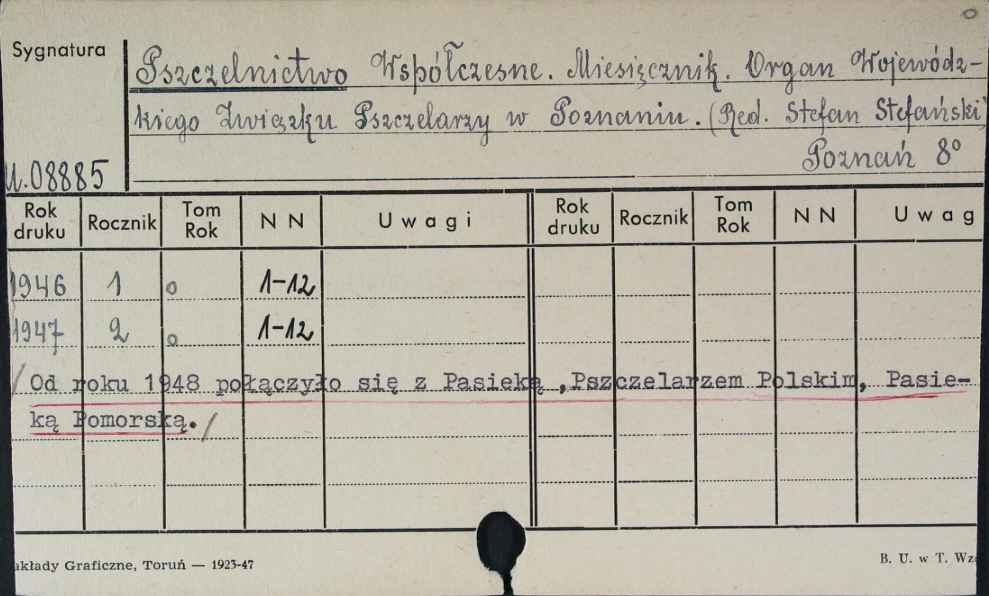 Sygnatura
Pszczelnictwo Współczesne. Miesięcznik. Organ Wojewódz-
kiego Związku Pszczelarzy w Poznaniu. (Red. Stefan Stefański)
Poznań 8°
U.08885
Rok druku Rocznik Tom Rok N N Uwagi Rok druku Rocznik Tom Rok N N Uwag
1946 1 o 1-12
1947 2 o 1-12
/Od roku 1948 połączyło się z Pasieką ,Pszczelarzem Polskim, Pasie-
ką Pomorską./
akłady Graficzne, Toruń — 1923-47
B. U. w T. Wz